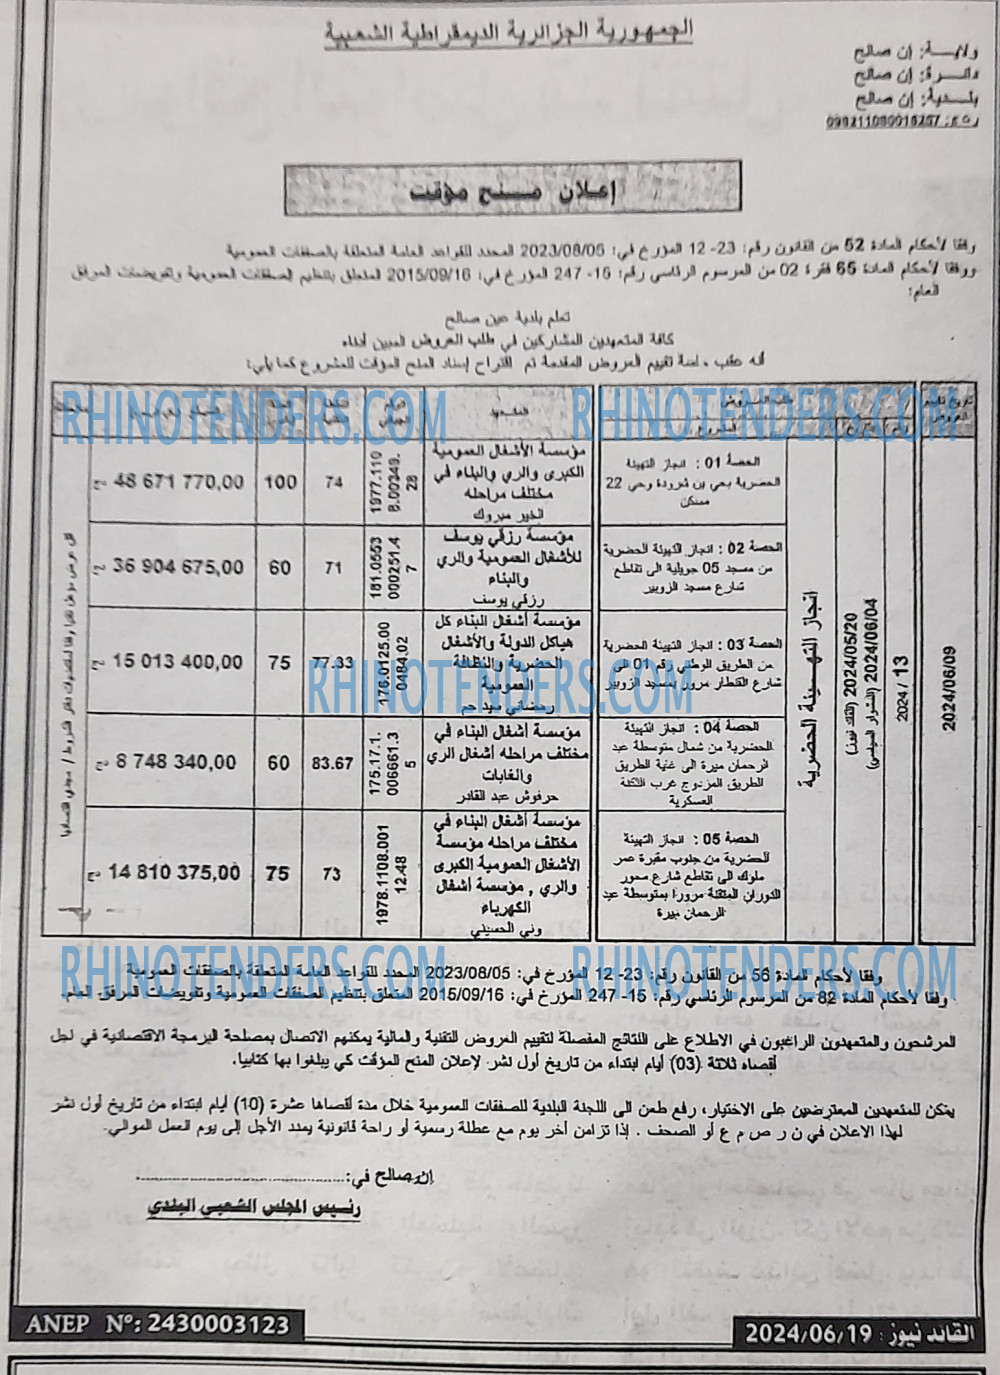 الجمهورية الجزائرية الديمقراطية الشعبية
ولايـــة: إن صالح
دائـرة: إن صالح
بلـديـة: إن صالح
إعلان مـنـح مؤقت
وفقا لأحكام المادة 52 من القانون رقم: 23- 12 المؤرخ في: 2023/08/05 المحدد للقواعد العامة المتعلقة بالصفقات العمومية
ووفقا لأحكام المادة 65 فقرة 02 من المرسوم الرئاسي رقم: 15- 247 المؤرخ في: 2015/09/16 المتعلق بتنظيم الصفقات العمومية وتفويضات المرفق
العام:
تعلم بلدية عين صالح
كافة المتعهدين المشاركين في طلب العروض المبين أدناه
أنه عقب جلسة تقييم العروض المقدمة تم اقتراح إسناد المنح المؤقت للمشروع كما يلي:
RHINOTENDERS.COM RHINOTENDERS.COM
2024/06/09
13 /2024
2024/05/20 (القائد نيوز)
2024/06/04 (المشوار السياسي)
انجاز التهـيئة الحضرية
الحصة 01 : انجاز التهيئة
الحضرية بحي بن شرودة وحي 22
مسكن
مؤسسة الأشغال العمومية
الكبرى والري والبناء في
مختلف مراحله
الخير مبروك
1977.110
8.00349.
28
74
100
48 671 770,00 دج
الحصة 02 : انجاز التهيئة الحضرية
من مسجد 05 جويلية الى تقاطع
شارع مسجد الزوبير
مؤسسة رزقي يوسف
للأشغال العمومية والري
والبناء
رزقي يوسف
181.0553
000251.4
7
71
60
36 904 675,00 دج
الحصة 03 : انجاز التهيئة الحضرية
من الطريق الوطني رقم 01 الى
شارع القنطار مرور بمسجد الزوبير
مؤسسة أشغال البناء كل
هياكل الدولة والأشغال
الحضرية والنظافة
العمومية
رمضاني سيد حم
176.0125.00
0484.02
77.33
75
15 013 400,00 دج
RHINOTENDERS.COM
الحصة 04 : انجاز التهيئة
الحضرية من شمال متوسطة عبد
الرحمان ميرة الى غاية الطريق
الطريق المزدوج غرب الثكنة
العسكرية
مؤسسة أشغال البناء في
مختلف مراحله أشغال الري
والغابات
حرفوش عبد القادر
175.17.1.
006661.3
5
83.67
60
8 748 340,00 دج
الحصة 05 : انجاز التهيئة
الحضرية من جنوب مقبرة عمر
ملوك الى تقاطع شارع محور
الدوران المثقلة مرورا بمتوسطة عبد
الرحمان ميرة
مؤسسة أشغال البناء في
مختلف مراحله مؤسسة
الأشغال العمومية الكبرى
والري , مؤسسة أشغال
الكهرباء
وني الحسيني
1978.1108.001
12.48
73
75
14 810 375,00 دج
RHINOTENDERS.COM RHINOTENDERS.COM
وفقا لأحكام المادة 56 من القانون رقم: 23- 12 المؤرخ في: 2023/08/05 المحدد للقواعد العامة المتعلقة بالصفقات العمومية
وفقا لأحكام المادة 82 من المرسوم الرئاسي رقم: 15- 247 المؤرخ في: 2015/09/16 المتعلق بتنظيم الصفقات العمومية وتفويضات المرفق العام.
المرشحون والمتعهدون الراغبون في الاطلاع على النتائج المفصلة لتقييم العروض التقنية والمالية يمكنهم الاتصال بمصلحة البرمجة الاقتصادية في اجل
أقصاه ثلاثة (03) أيام ابتداء من تاريخ أول نشر لإعلان المنح المؤقت كي يبلغوا بها كتابيا.
يمكن للمتعهدين المعترضين على الاختيار، رفع طعن الى اللجنة البلدية للصفقات العمومية خلال مدة أقصاها عشرة (10) أيام ابتداء من تاريخ أول نشر
لهذا الاعلان في ن ر ص م ع أو الصحف . إذا تزامن أخر يوم مع عطلة رسمية أو راحة قانونية يمدد الأجل إلى يوم العمل الموالي.
إن صالح في:.............................
رئيس المجلس الشعبي البلدي
ANEP N°: 2430003123
القائد نيوز : 2024/06/19